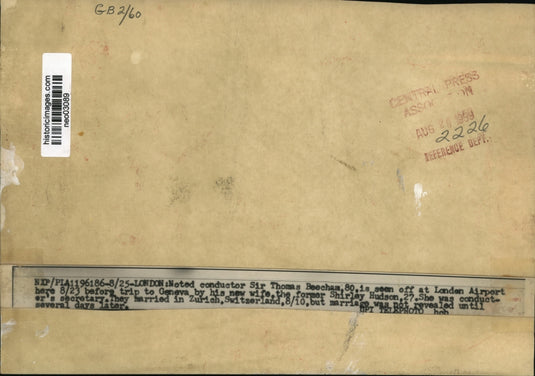 GB2/60
historicimages.com
neo03089
CENTRAL PRESS
ASSOCIATION
AUG 26 1959
2226
REFERENCE DEPT.
NXP/PIA1196186-8/25-LONDON:Noted conductor Sir Thomas Beecham,80,is seen off at London Airport
here 8/23 before trip to Geneva by his new wife,the former Shirley Hudson,27.She was conduct-
er's secretary.They married in Zurich,Switzerland,8/10,but marriage was not revealed until
several days later. UPI TELEPHOTO hcb